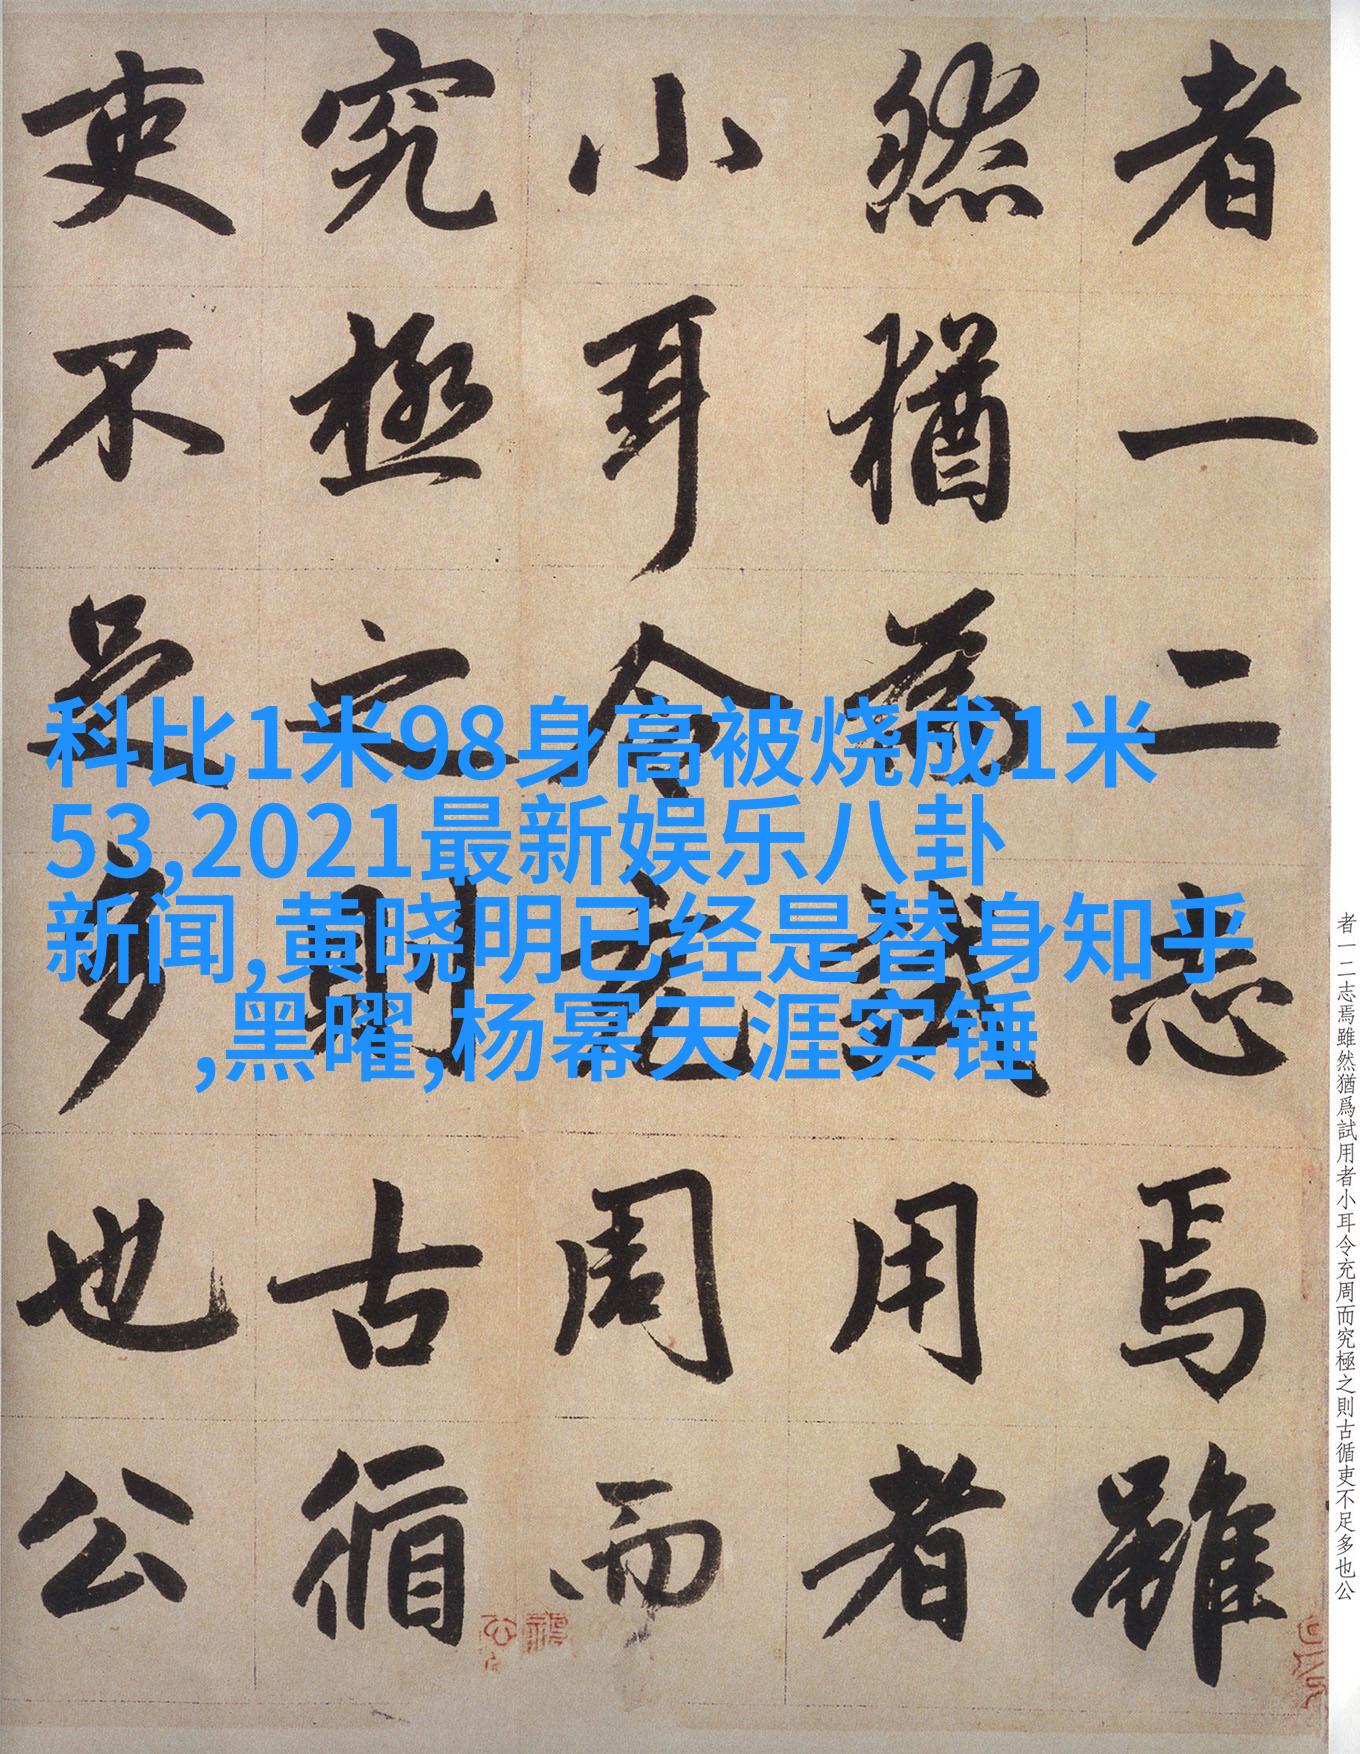 者一二志焉雖
然猶為試用者
小耳令充周而
究極之則古循
吏不足多也公
科比1米98身高被烧成1米
53,2021最新娱乐八卦
新闻,黄晓明已经是替身知乎
,黑曜,杨幂天涯实锤
者一二志焉雖然猶爲試用者小耳令充周而究極之則古循吏不足多也公